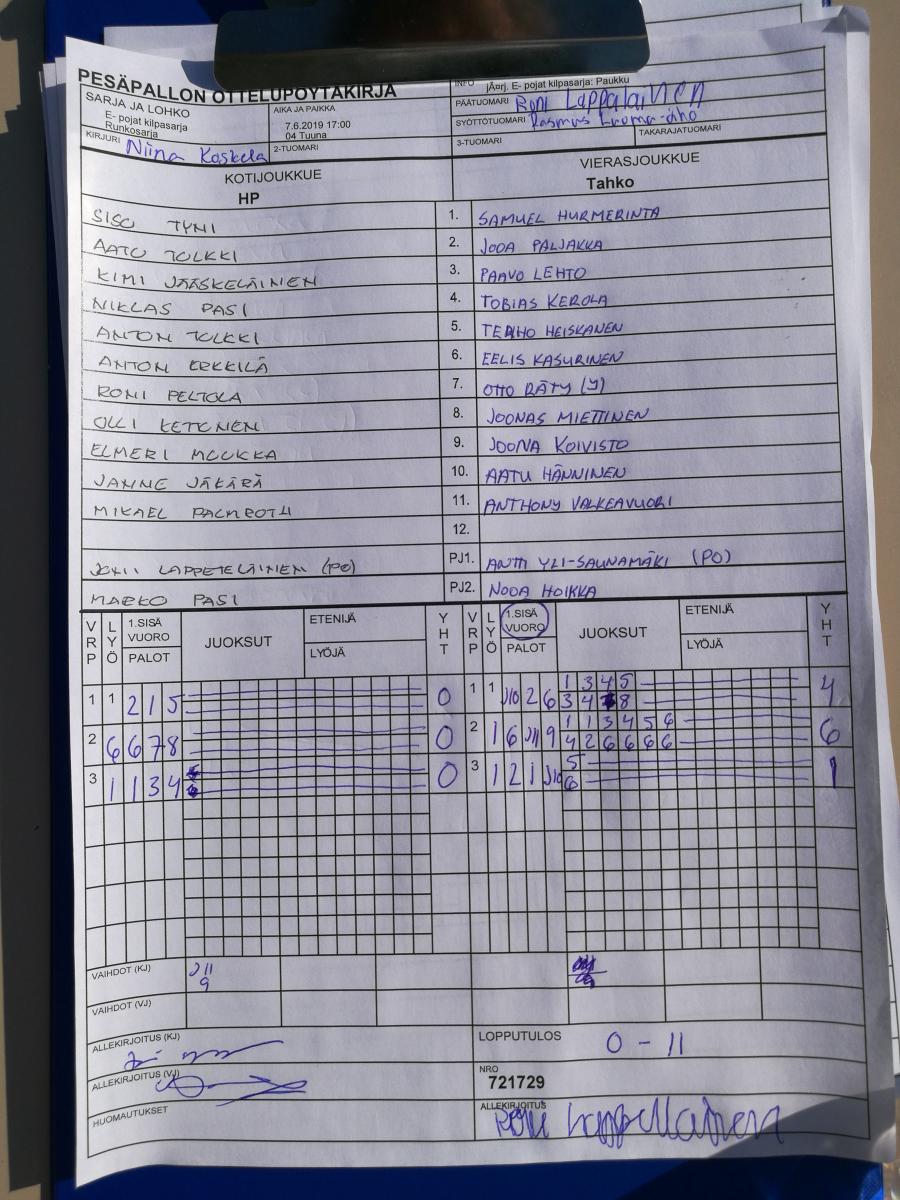 PESÄPALLON OTTELUPÖYTÄKIRJA
INFO jÄ¤rj. E- pojat kilpasarja: Paukku
SARJA JA LOHKO
E- pojat kilpasarja
Runkosarja
AIKA JA PAIKKA
7.6.2019 17:00
04 Tuuna
PÄÄTUOMARI Roni Lappalainen
SYÖTTÖTUOMARI Rasmus Luoma-aho
KIRJURI Niina Koskela
2-TUOMARI
3-TUOMARI
TAKARAJATUOMARI
KOTIJOUKKUE
HP
VIERASJOUKKUE
Tahko
SISU TYNI 1. SAMUEL HURMERINTA
AATU TOLKKI 2. JODA PALJAKKA
KIMI JÄÄSKELÄINEN 3. PAAVO LEHTO
NIKLAS PASI 4. TOBIAS KEROLA
ANTON TOLKKI 5. TERHO HEISKANEN
ANTON ERKKILÄ 6. EELIS KASURINEN
RONI PELTOLA 7. OTTO RÄTY (J)
OLLI KETONEN 8. JOONAS MIETTINEN
ELMERI MOUKKA 9. JOONA KOIVISTO
JANNE JÄKÄRÄ 10. AATU HÄNNINEN
MIKAEL PALMROTH 11. ANTHONY VALKEAVUORI
12.
LAPPETELÄINEN (PO) PJ1. ANTTI YLI-SAUNAMÄKI (PO)
MARKO PASI PJ2. NOOA HOIKKA
VRP LYÖ 1.SISÄ VUORO PALOT JUOKSUT ETENIJÄ LYÖJÄ YHT VRP LYÖ 1.SISÄ VUORO PALOT JUOKSUT ETENIJÄ LYÖJÄ YHT
1 1 2 1 5 0 1 1 J10 2 6 1 3 4 5 4
3 4 8
2 6 6 7 8 0 2 1 6 J11 9 1 1 3 4 5 6 6
4 2 6 6 6 6
3 1 1 3 4 0 3 1 2 1 J10 5 1
6
VAIHDOT (KJ) J11
9
VAIHDOT (VJ)
ALLEKIRJOITUS (KJ)
LOPPUTULOS 0 - 11
ALLEKIRJOITUS (VJ)
NRO
721729
HUOMAUTUKSET
ALLEKIRJOITUS Roni Lappalainen